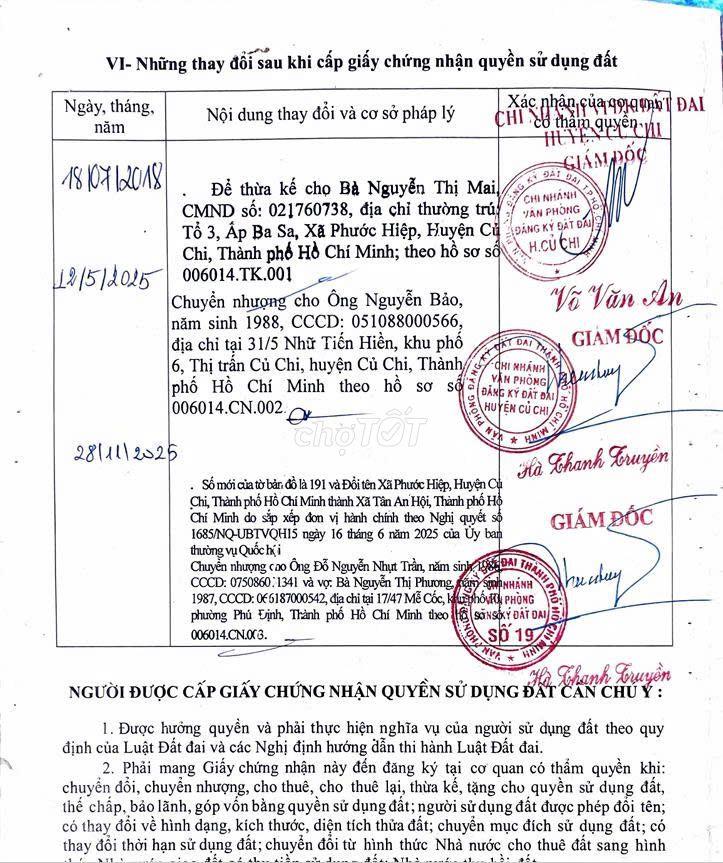 VI- Những thay đổi sau khi cấp giấy chứng nhận quyền sử dụng đất
Ngày, tháng, năm
Nội dung thay đổi và cơ sở pháp lý
Xác nhận của cơ quan có thẩm quyền
CHI NHÁNH VPĐK ĐẤT ĐAI
HUYỆN CỦ CHI
GIÁM ĐỐC
18/07/2018
. Để thừa kế cho Bà Nguyễn Thị Mai,
CMND số: 021760738, địa chỉ thường trú
Tổ 3, Ấp Ba Sa, Xã Phước Hiệp, Huyện Củ
Chi, Thành phố Hồ Chí Minh; theo hồ sơ số
006014.TK.001
CHI NHÁNH
VĂN PHÒNG
ĐĂNG KÝ ĐẤT ĐAI
H.CỦ CHI
Võ Văn An
12/5/2025
Chuyển nhượng cho Ông Nguyễn Bảo,
năm sinh 1988, CCCD: 051088000566,
địa chỉ tại 31/5 Nhữ Tiến Hiền, khu phố
6, Thị trấn Củ Chi, huyện Củ Chi, Thành
phố Hồ Chí Minh theo hồ sơ số
006014.CN.002
GIÁM ĐỐC
VĂN PHÒNG ĐĂNG KÝ ĐẤT ĐAI THÀNH PHỐ HỒ CHÍ MINH
CHI NHÁNH
VĂN PHÒNG
ĐĂNG KÝ ĐẤT ĐAI
HUYỆN CỦ CHI
Hà Thanh Truyền
chợTỐT
28/11/2025
. Số mới của tờ bản đồ là 191 và Đổi tên Xã Phước Hiệp, Huyện Củ
Chi, Thành phố Hồ Chí Minh thành Xã Tân An Hội, Thành phố Hồ
Chí Minh do sắp xếp đơn vị hành chính theo Nghị quyết số
1685/NQ-UBTVQH15 ngày 16 tháng 6 năm 2025 của Ủy ban
thường vụ Quốc hội
Chuyển nhượng cho Ông Đỗ Nguyễn Nhựt Trần, năm sinh
CCCD: và vợ: Bà Nguyễn Thị Phương, năm sinh
1987, CCCD: 066187000542, địa chỉ tại 17/47 Mễ Cốc, khu phố
phường Phú Định, Thành phố Hồ Chí Minh theo hồ sơ số
006014.CN.003.
GIÁM ĐỐC
CHI NHÁNH
VĂN PHÒNG
ĐĂNG KÝ ĐẤT ĐAI
SỐ 19
Hà Thanh Truyền
NGƯỜI ĐƯỢC CẤP GIẤY CHỨNG NHẬN QUYỀN SỬ DỤNG ĐẤT CẦN CHÚ Ý :
1. Được hưởng quyền và phải thực hiện nghĩa vụ của người sử dụng đất theo quy
định của Luật Đất đai và các Nghị định hướng dẫn thi hành Luật Đất đai.
2. Phải mang Giấy chứng nhận này đến đăng ký tại cơ quan có thẩm quyền khi:
chuyển đổi, chuyển nhượng, cho thuê, cho thuê lại, thừa kế, tặng cho quyền sử dụng đất,
thế chấp, bảo lãnh, góp vốn bằng quyền sử dụng đất; người sử dụng đất được phép đổi tên;
có thay đổi về hình dạng, kích thước, diện tích thửa đất; chuyển mục đích sử dụng đất; có
thay đổi thời hạn sử dụng đất; chuyển đổi từ hình thức Nhà nước cho thuê đất sang hình